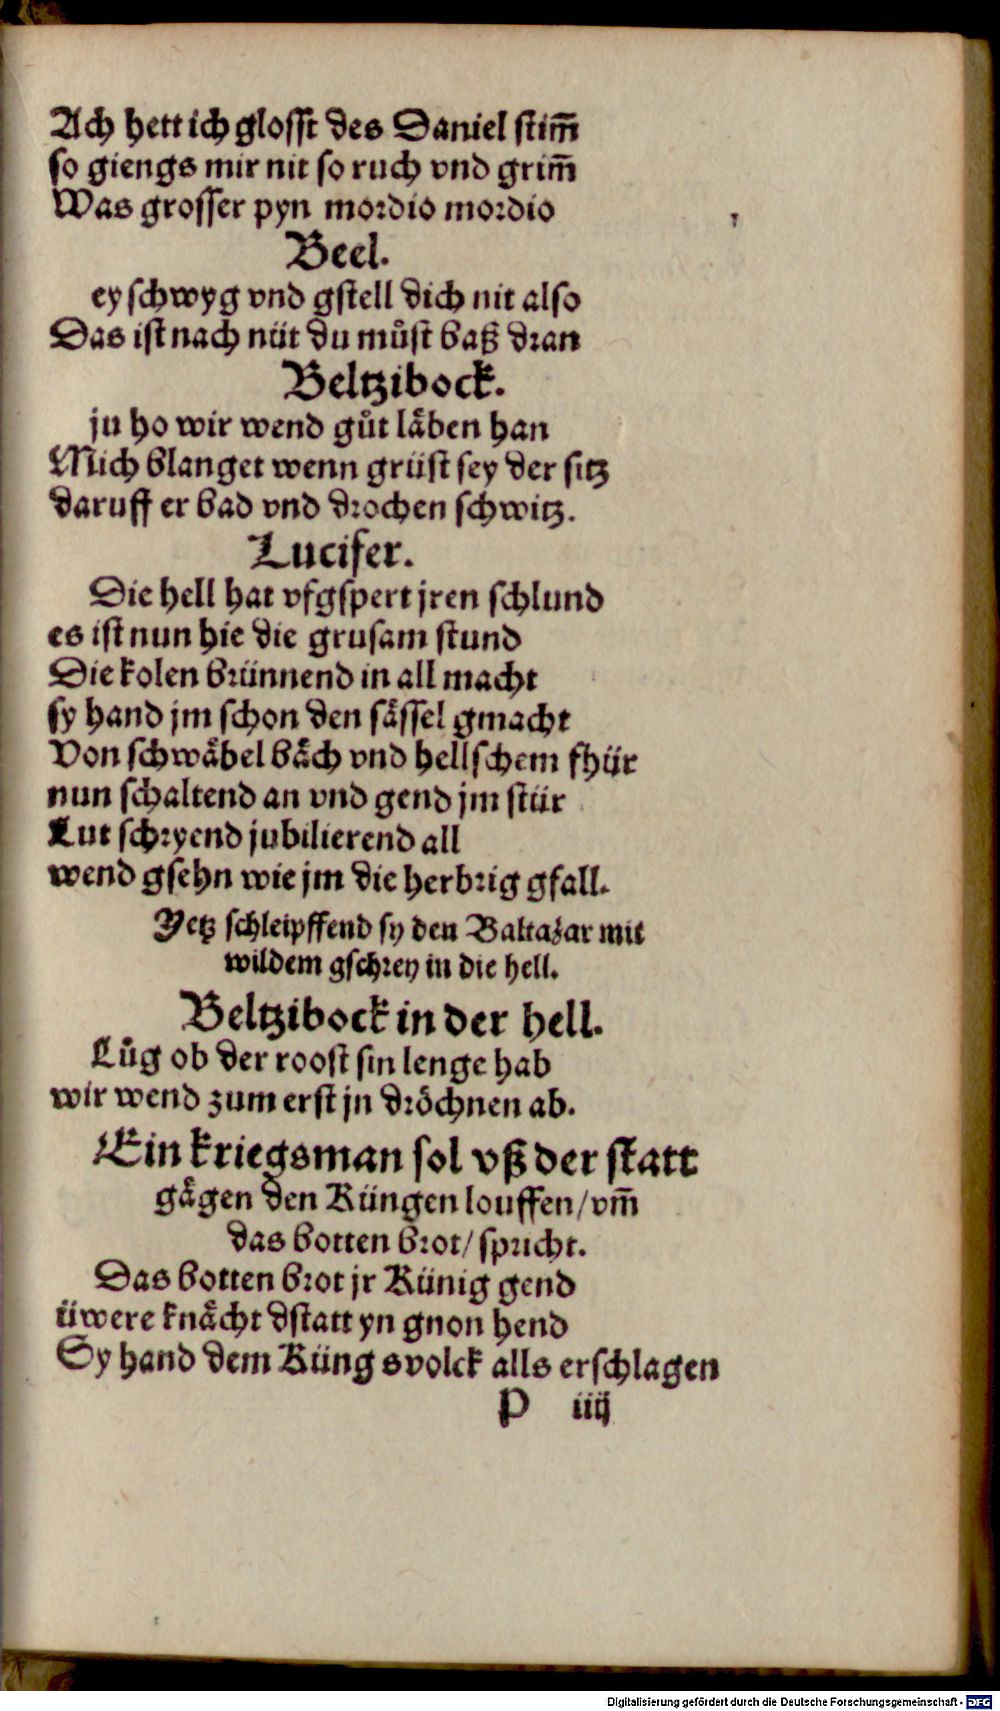 Ach hett ich glosst des Daniel stim̃
so giengs mir nit so ruch vnd grim̃
Was grosser pyn mordio mordio
Beel.
ey schwyg vnd gstell dich nit also
Das ist nach nüt du můst baß dran
Beltzibock.
ju ho wir wend gůt laͤben han
Mich blanget wenn grüst sey der sitz
daruff er bad vnd drochen schwitz.
Lucifer.
Die hell hat vfgspert jren schlund
es ist nun hie die grusam stund
Die kolen brünnend in all macht
sy hand jm schon den saͤssel gmacht
Von schwaͤbel baͤch vnd hellschem fhür
nun schaltend an vnd gend jm stür
Lut schryend jubilierend all
wend gsehn wie jm die herbrig gfall.
Yetz schleipffend sy den Baltazar mit
wildem gschrey in die hell.
Beltzibock in der hell.
Lůg ob der roost sin lenge hab
wir wend zum erst jn dröchnen ab.
Ein kriegsman sol vß der statt
gaͤgen den Küngen louffen/vm̃
das botten brot/spricht.
Das botten brot jr Künig gend
üwere knaͤcht dstatt yn gnon hend
Sy hand dem Küng svolck alls erschlagen
P iiij
Digitalisierung gefördert durch die Deutsche Forschungsgemeinschaft - DFG